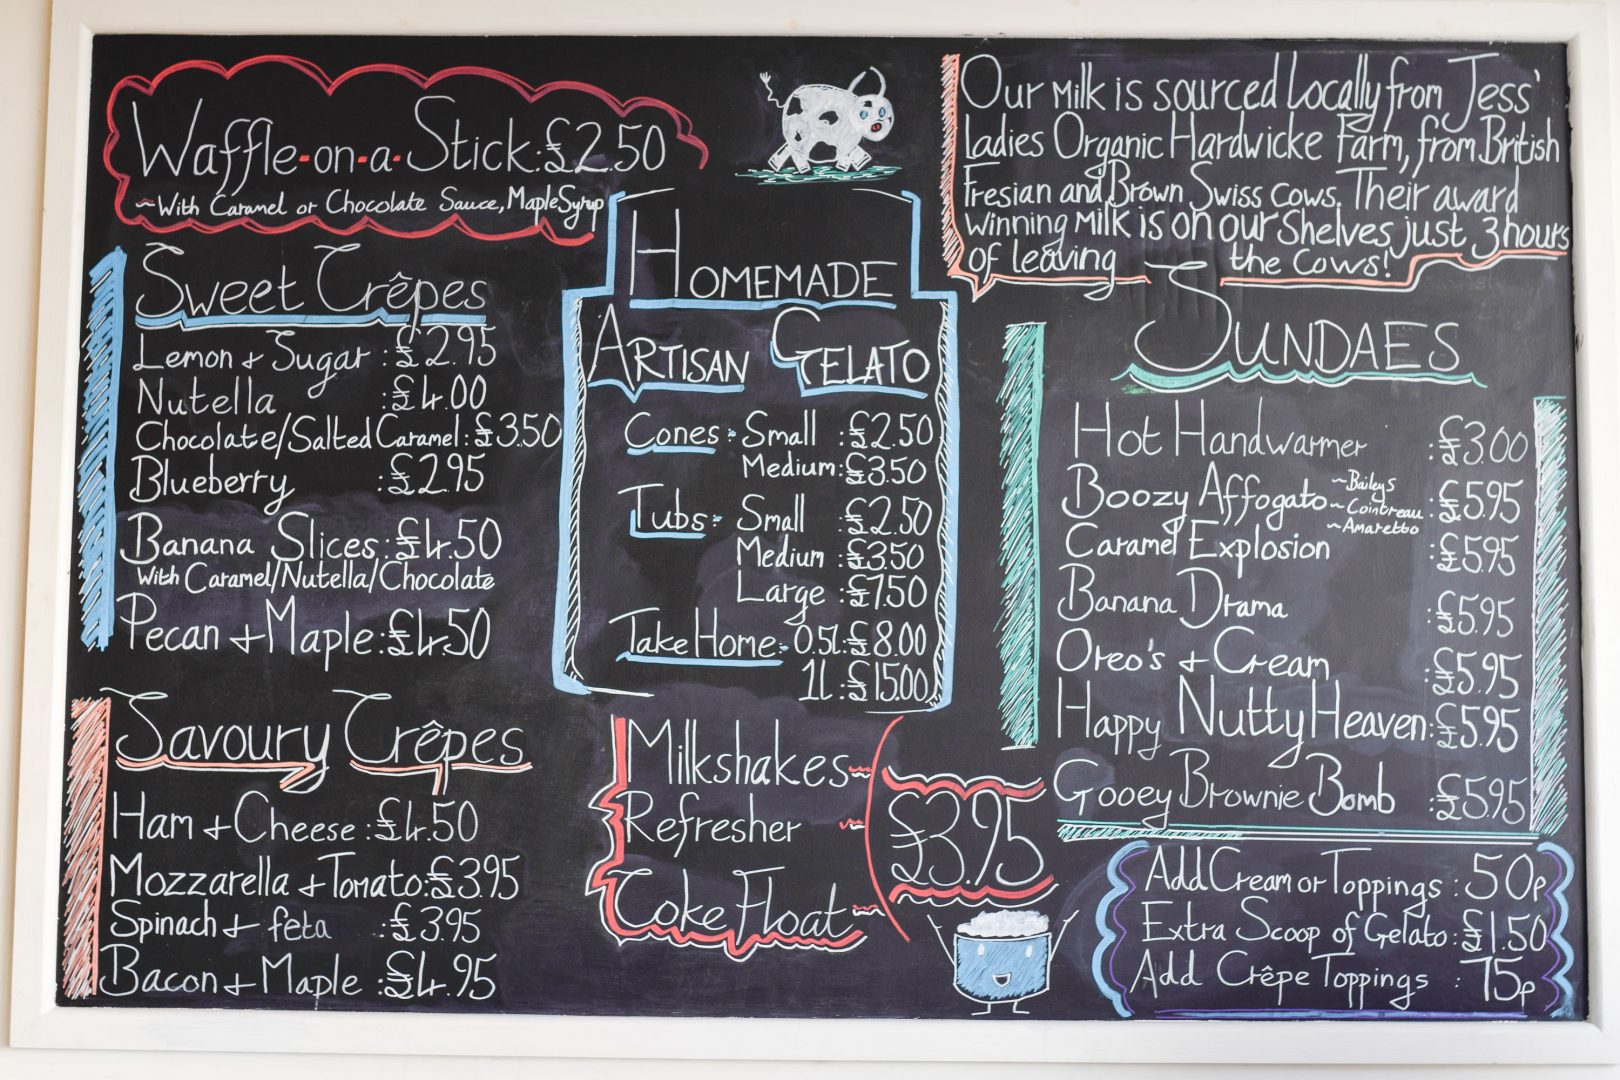 Waffle-on-a-Stick:£2.50
~With Caramel or Chocolate Sauce, Maple Syrup
Sweet Crêpes
Lemon + Sugar :£2.95
Nutella :£4.00
Chocolate/Salted Caramel:£3.50
Blueberry :£2.95
Banana Slices:£4.50
With Caramel/Nutella/Chocolate
Pecan + Maple:£4.50
Savoury Crêpes
Ham + Cheese :£4.50
Mozzarella + Tomato:£3.95
Spinach + feta :£3.95
Bacon + Maple :£4.95
Homemade
Artisan Gelato
Cones: Small :£2.50
Medium:£3.50
Tubs: Small :£2.50
Medium :£3.50
Large :£7.50
Take Home: 0.5l:£8.00
1l :£15.00
Milkshakes~
Refresher ~
Coke Float~
£3.95
Our Milk is sourced Locally from Jess'
Ladies Organic Hardwicke Farm, from British
Fresian and Brown Swiss cows. Their award
winning milk is on our shelves just 3 hours
of leaving the cows!
Sundaes
Hot Handwarmer :£3.00
Boozy Affogato ~Baileys ~Cointreau ~Amaretto :£5.95
Caramel Explosion :£5.95
Banana Drama :£5.95
Oreo's + Cream :£5.95
Happy Nutty Heaven:£5.95
Gooey Brownie Bomb :£5.95
Add Cream or Toppings : 50p
Extra Scoop of Gelato:£1.50
Add Crêpe Toppings : 75p